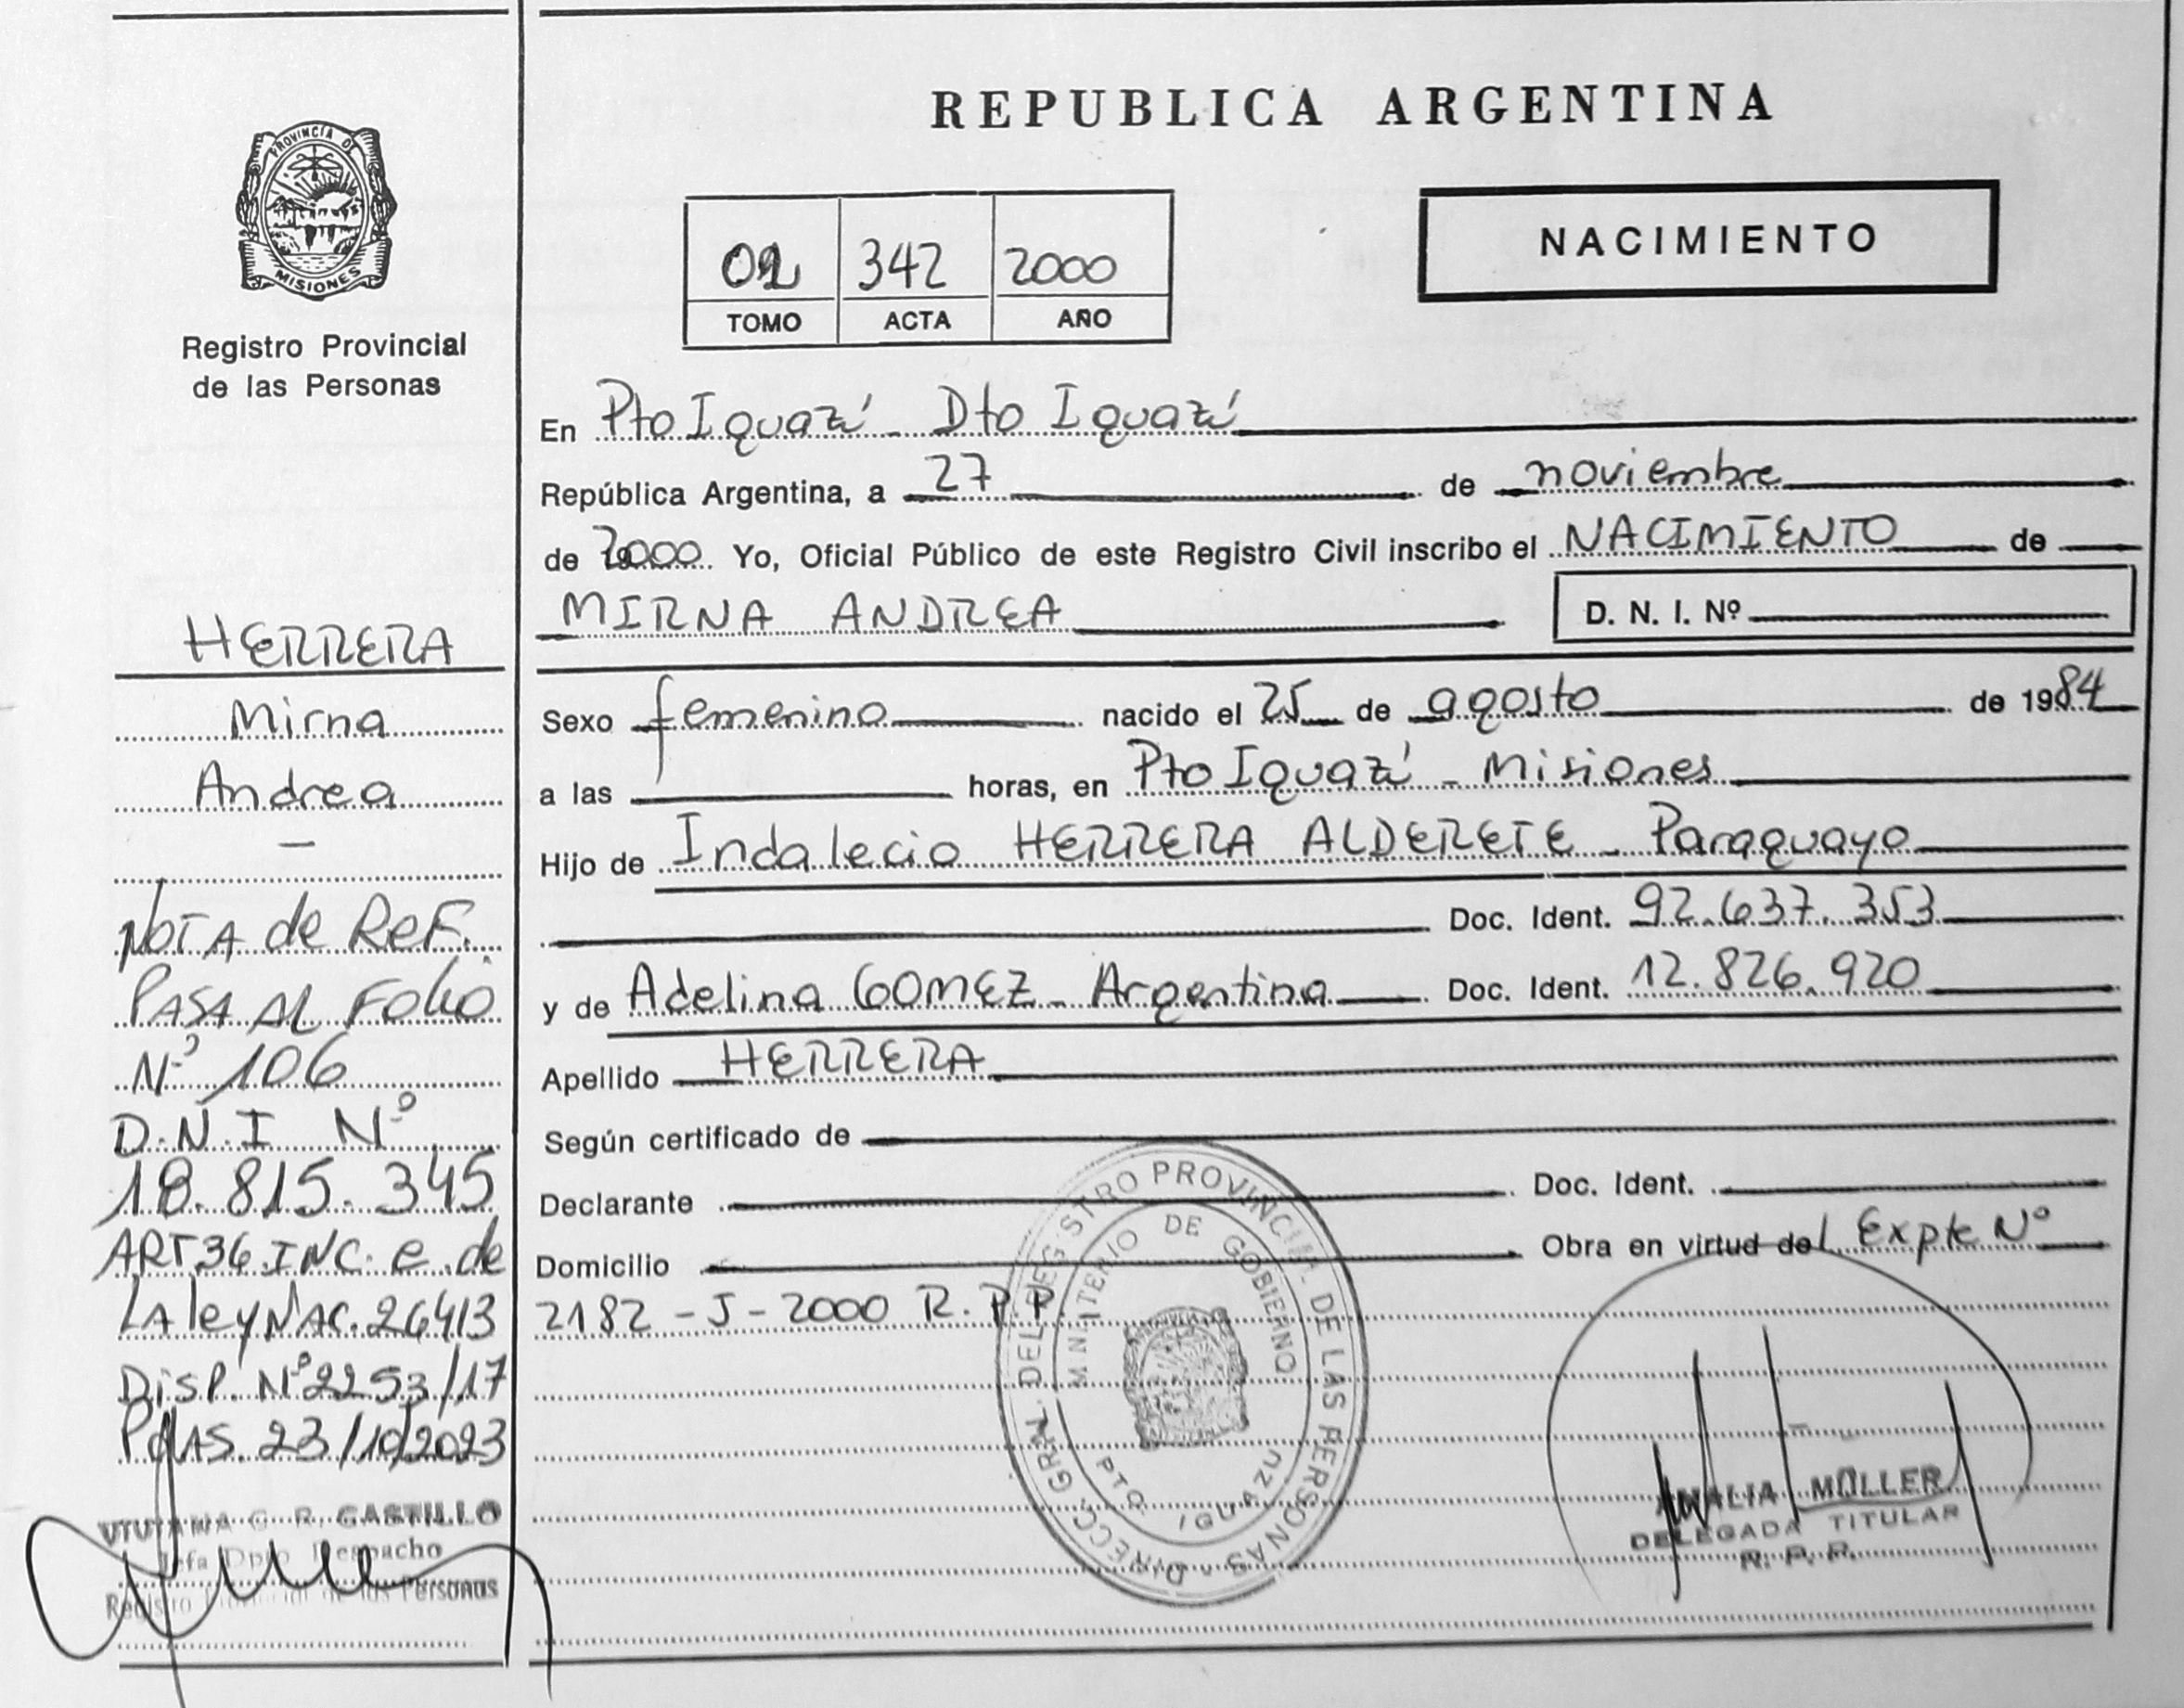 PROVINCIA D
MISIONES
Registro Provincial
de las Personas
HERRERA
Mirna
Andrea
—
NOTA de ReF.
PASA AL FOLIO
Nº 106
D.N.I Nº
18.815.345
ART 36 INC. e de
LA ley NAC. 26413
DiSP. Nº 2253/17
Pdas. 23/10/2023
C. R. CASTILLO
Jefa Dpto Despacho
Registro de las Personas
REPUBLICA ARGENTINA
NACIMIENTO
02 342 2000
TOMO ACTA AÑO
En Pto Iguazú - Dto Iguazú
República Argentina, a 27 de noviembre
de 2000 Yo, Oficial Público de este Registro Civil inscribo el NACIMIENTO de
MIRNA ANDREA D. N. I. Nº
Sexo femenino nacido el 25 de agosto de 1984
a las horas, en Pto Iguazú - Misiones
Hijo de Indalecio HERRERA ALDERETE - Paraguayo
Doc. Ident. 92.637.353
y de Adelina GOMEZ - Argentina Doc. Ident. 12.826.920
Apellido HERRERA
Según certificado de
Declarante Doc. Ident.
Domicilio Obra en virtud del Expte Nº
2182 - J - 2000 R.P.P.
DIRECC. GRAL. DEL REGISTRO PROVINCIAL DE LAS PERSONAS
MINISTERIO DE GOBIERNO
PTO IGUAZU
ANALIA MÜLLER
DELEGADA TITULAR
R. P. P.